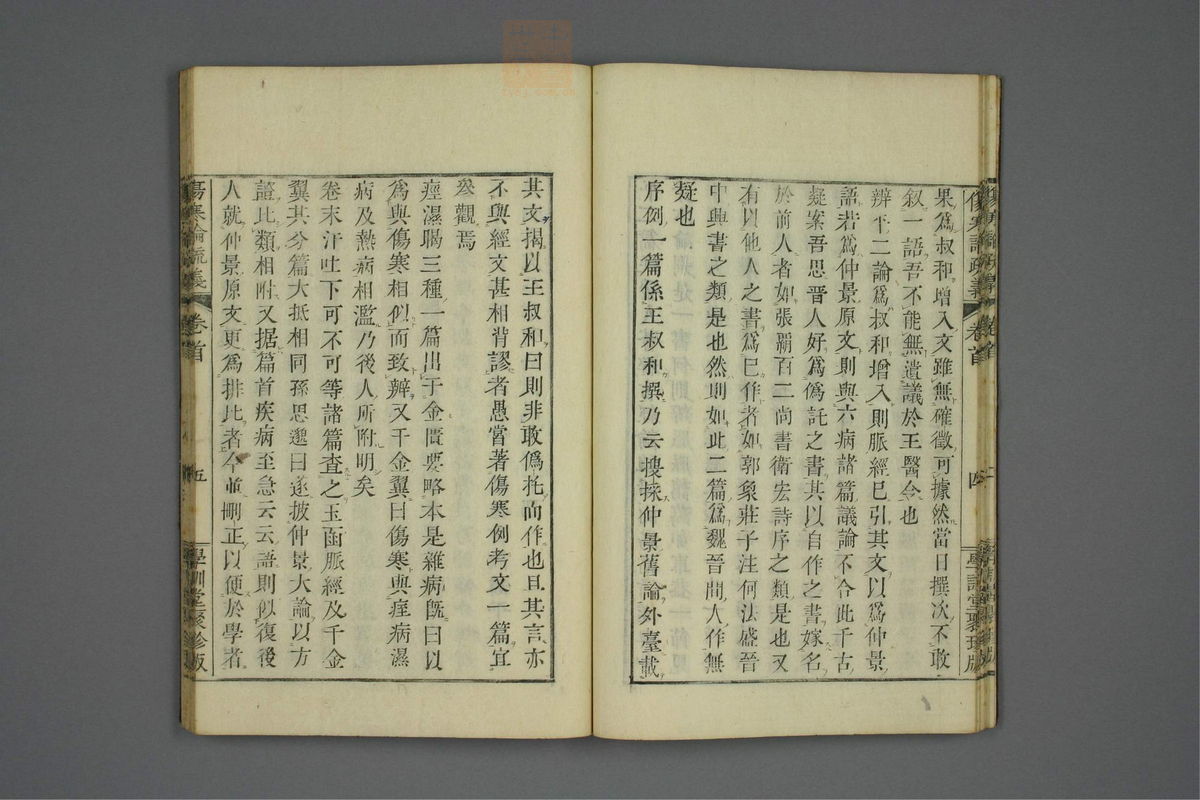 果爲叔和增入文雖無確徵可據然當日撰次不敢
叙一語吾不能無遺議於王醫令也
辨平二論爲叔和增入則脈經已引其文以爲仲景
語若爲仲景原文則與六病諸篇議論不合此千古
疑案吾思晋人好爲僞託之書其以自作之書嫁名
於前人者如張霸百二尚書衛宏詩序之類是也又
有以他人之書爲己作者如郭象莊子注何法盛晉
中興書之類是也然則如此二篇爲魏晉間人作無
疑也
序例一篇係王叔和撰乃云搜採仲景舊論外臺載
其文揭以王叔和曰則非敢僞托而作也且其言亦
不與經文甚相背謬者愚嘗著傷寒例考文一篇宜
參觀焉
痙濕暍三種一篇出于金匱要略本是雜病既曰以
爲與傷寒相似而致辨又千金翼曰傷寒與痙病濕
病及熱病相濫乃後人所附明矣
卷末汗吐下可不可等諸篇查之玉函脈經及千金
翼其分篇大抵相同孫思邈曰遂披仲景大論以方
證比類相附又据篇首疾病至急云云語則似復後
人就仲景原文更爲排比者今並刪正以便於學者
傷寒論疏義 卷首 五 學訓堂聚珍版